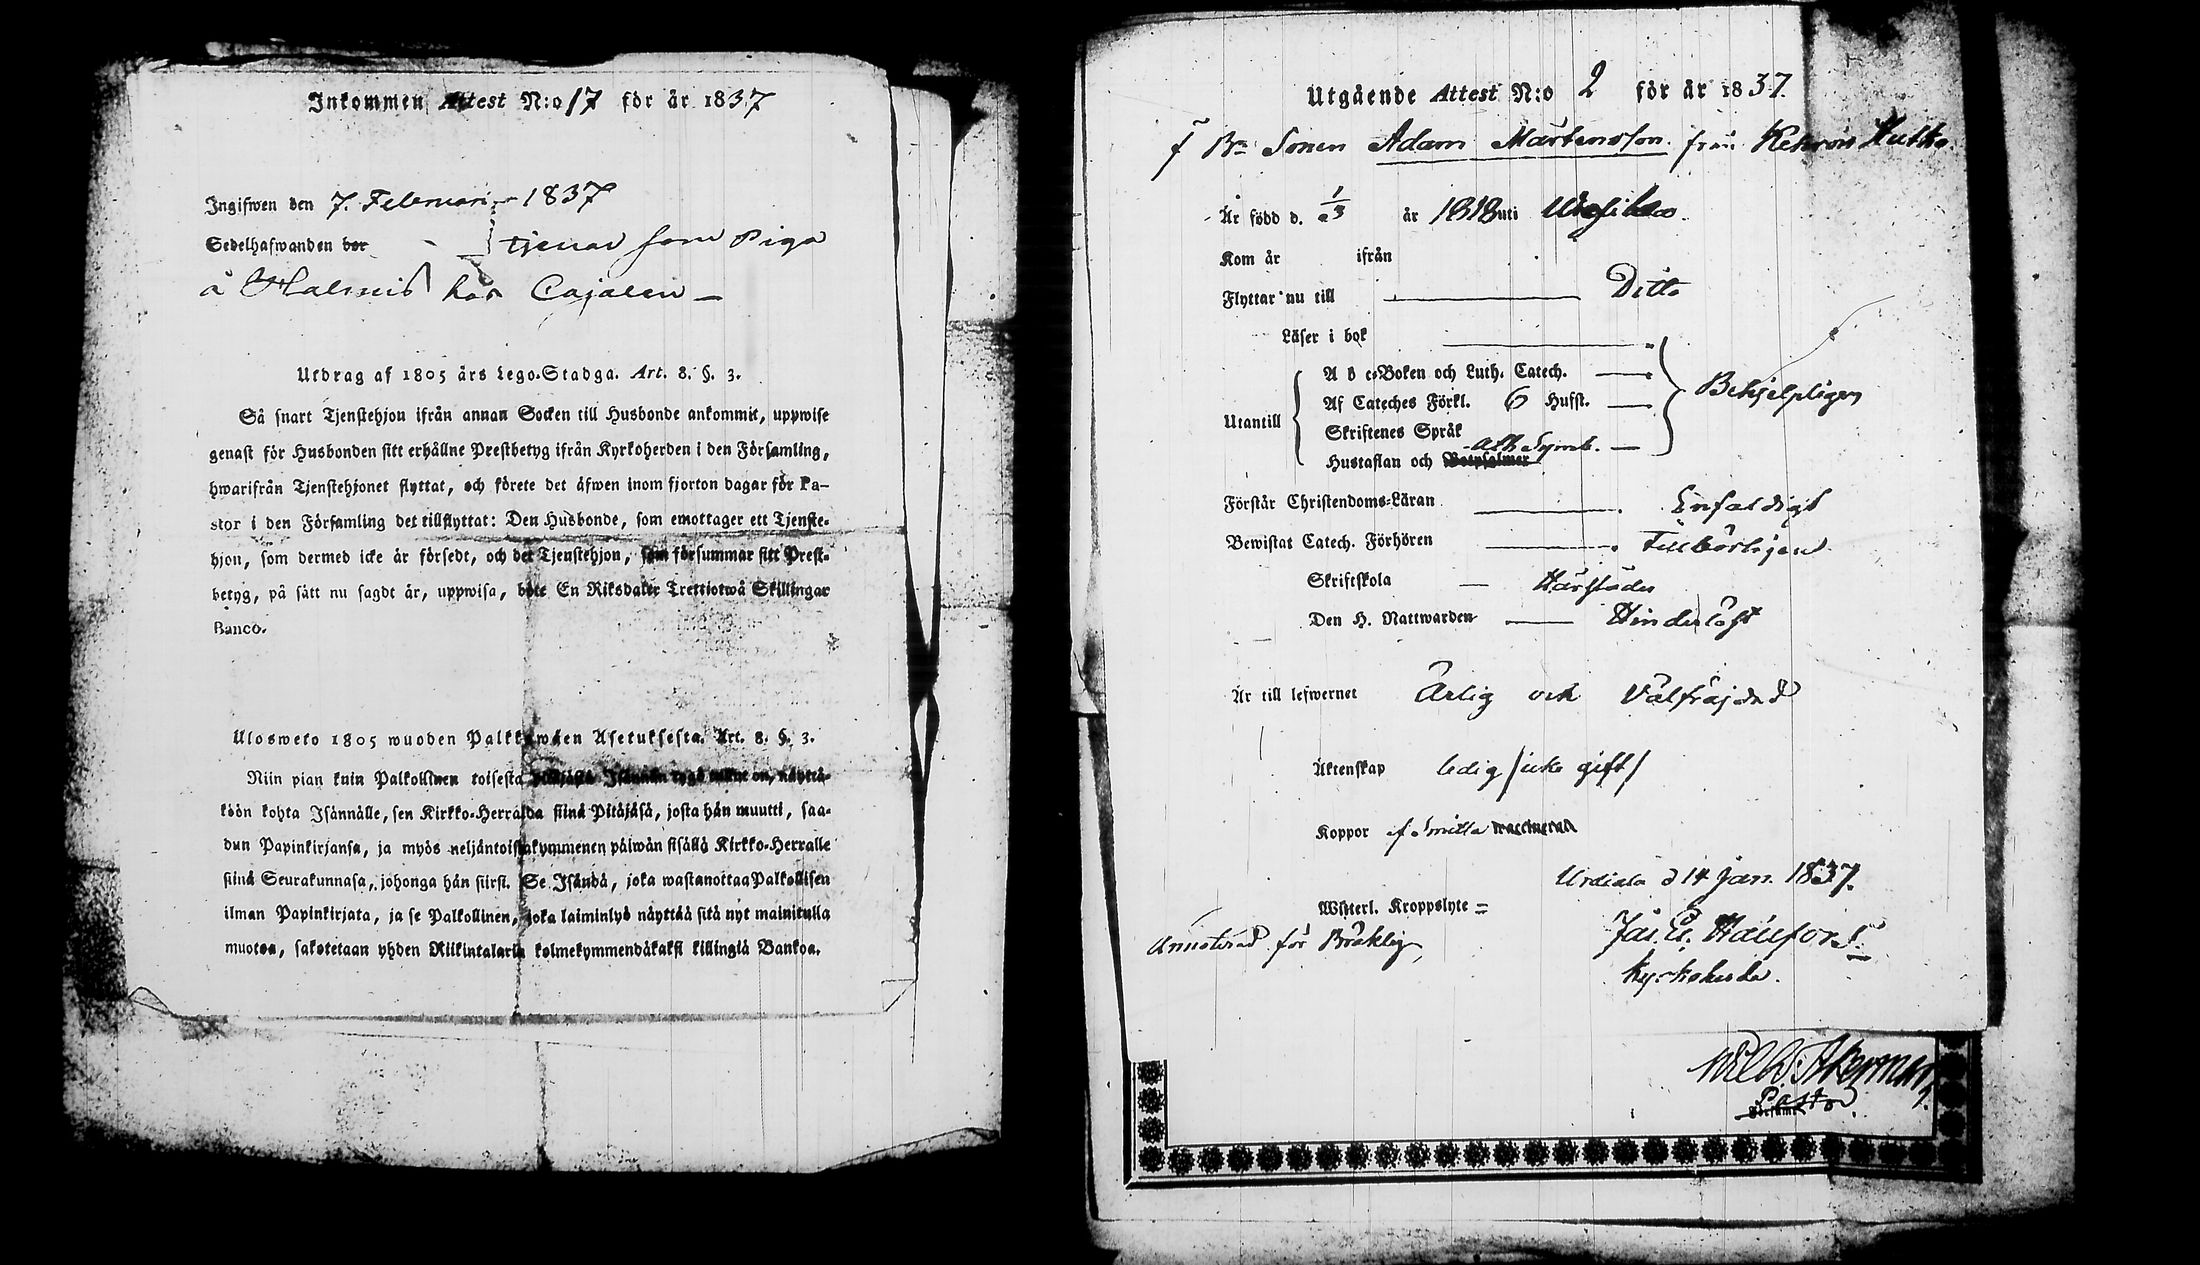 Inkommen Attest N:o 17 för år 1837
Ingifwen den 7. Februari 1837
Sedelhafwanden bor tjenar som Piga
å hos Cajalen —
Utdrag af 1805 års Lego-Stadga. Art. 8. §. 3.
Så snart Tjenstehjon ifrån annan Socken till Husbonde ankommit, uppwise
genast för Husbonden sitt erhållne Prestbetyg ifrån Kyrkoherden i den Församling,
hwarifrån Tjenstehjonet flyttat, och förete det äfwen inom fjorton dagar för Pa-
stor i den Församling det tillflyttat: Den Husbonde, som emottager ett Tjenste-
hjon, som dermed icke är försedt, och det Tjenstehjon, som försummar sitt Prest-
betyg, på sätt nu sagdt är, uppwisa, böte En Riksdaler Trettiotwå Skillingar
Banco.
Ulosweto 1805 wuoden Palkkawäen Asetuksesta. Art. 8. §. 3.
Niin pian kuin Palkollinen toisesta Isännän tygö tullut on, näyttä-
köön kohta Isännälle, sen Kirkko-Herralda siinä Pitäjäsä, josta hän muutti, saa-
dun Papinkirjansa, ja myös neljäntoistakymmenen päiwän sisällä Kirkko-Herralle
siinä Seurakunnasa, johonga hän siirsi. Se Isändä, joka wastanottaa Palkollisen
ilman Papinkirjata, ja se Palkollinen, joka laiminlyö näyttää sitä nyt mainitulla
muotoa, sakotetaan yhden Riikintalarin kolmekymmendäkaksi killingiä Bankoa.
Utgående Attest N:o 2 för år 1837.
f Bn Sonen Adam Mårtensson från Kehrois Huhta
Är född d. 1/3 år 1818 uti
Kom år ifrån
Flyttar nu till Ditto
Läser i bok
Utantill
A b c-Boken och Luth. Catech.
Af Cateches Förkl. 6 Hufst.
Skriftenes Språk
Hustaflan och Botpsalmer Ath Symb.
Behjelpligen
Förstår Christendoms-Läran Enfaldigt
Bewistat Catech. Förhören Tillbörligen
Skriftskola Härstädes
Den H. Nattwarden Hinderlöst
Är till lefwernet Ärlig och Välfräjdad
Äktenskap ledig /icke gift/
Koppor af Smitta vaccinerad
Urdiala d 14 Jan. 1837.
Witterl. Kroppslyte =
Annoterad för Bräklig
Kyrkoherde.
Åkerman
Pastor